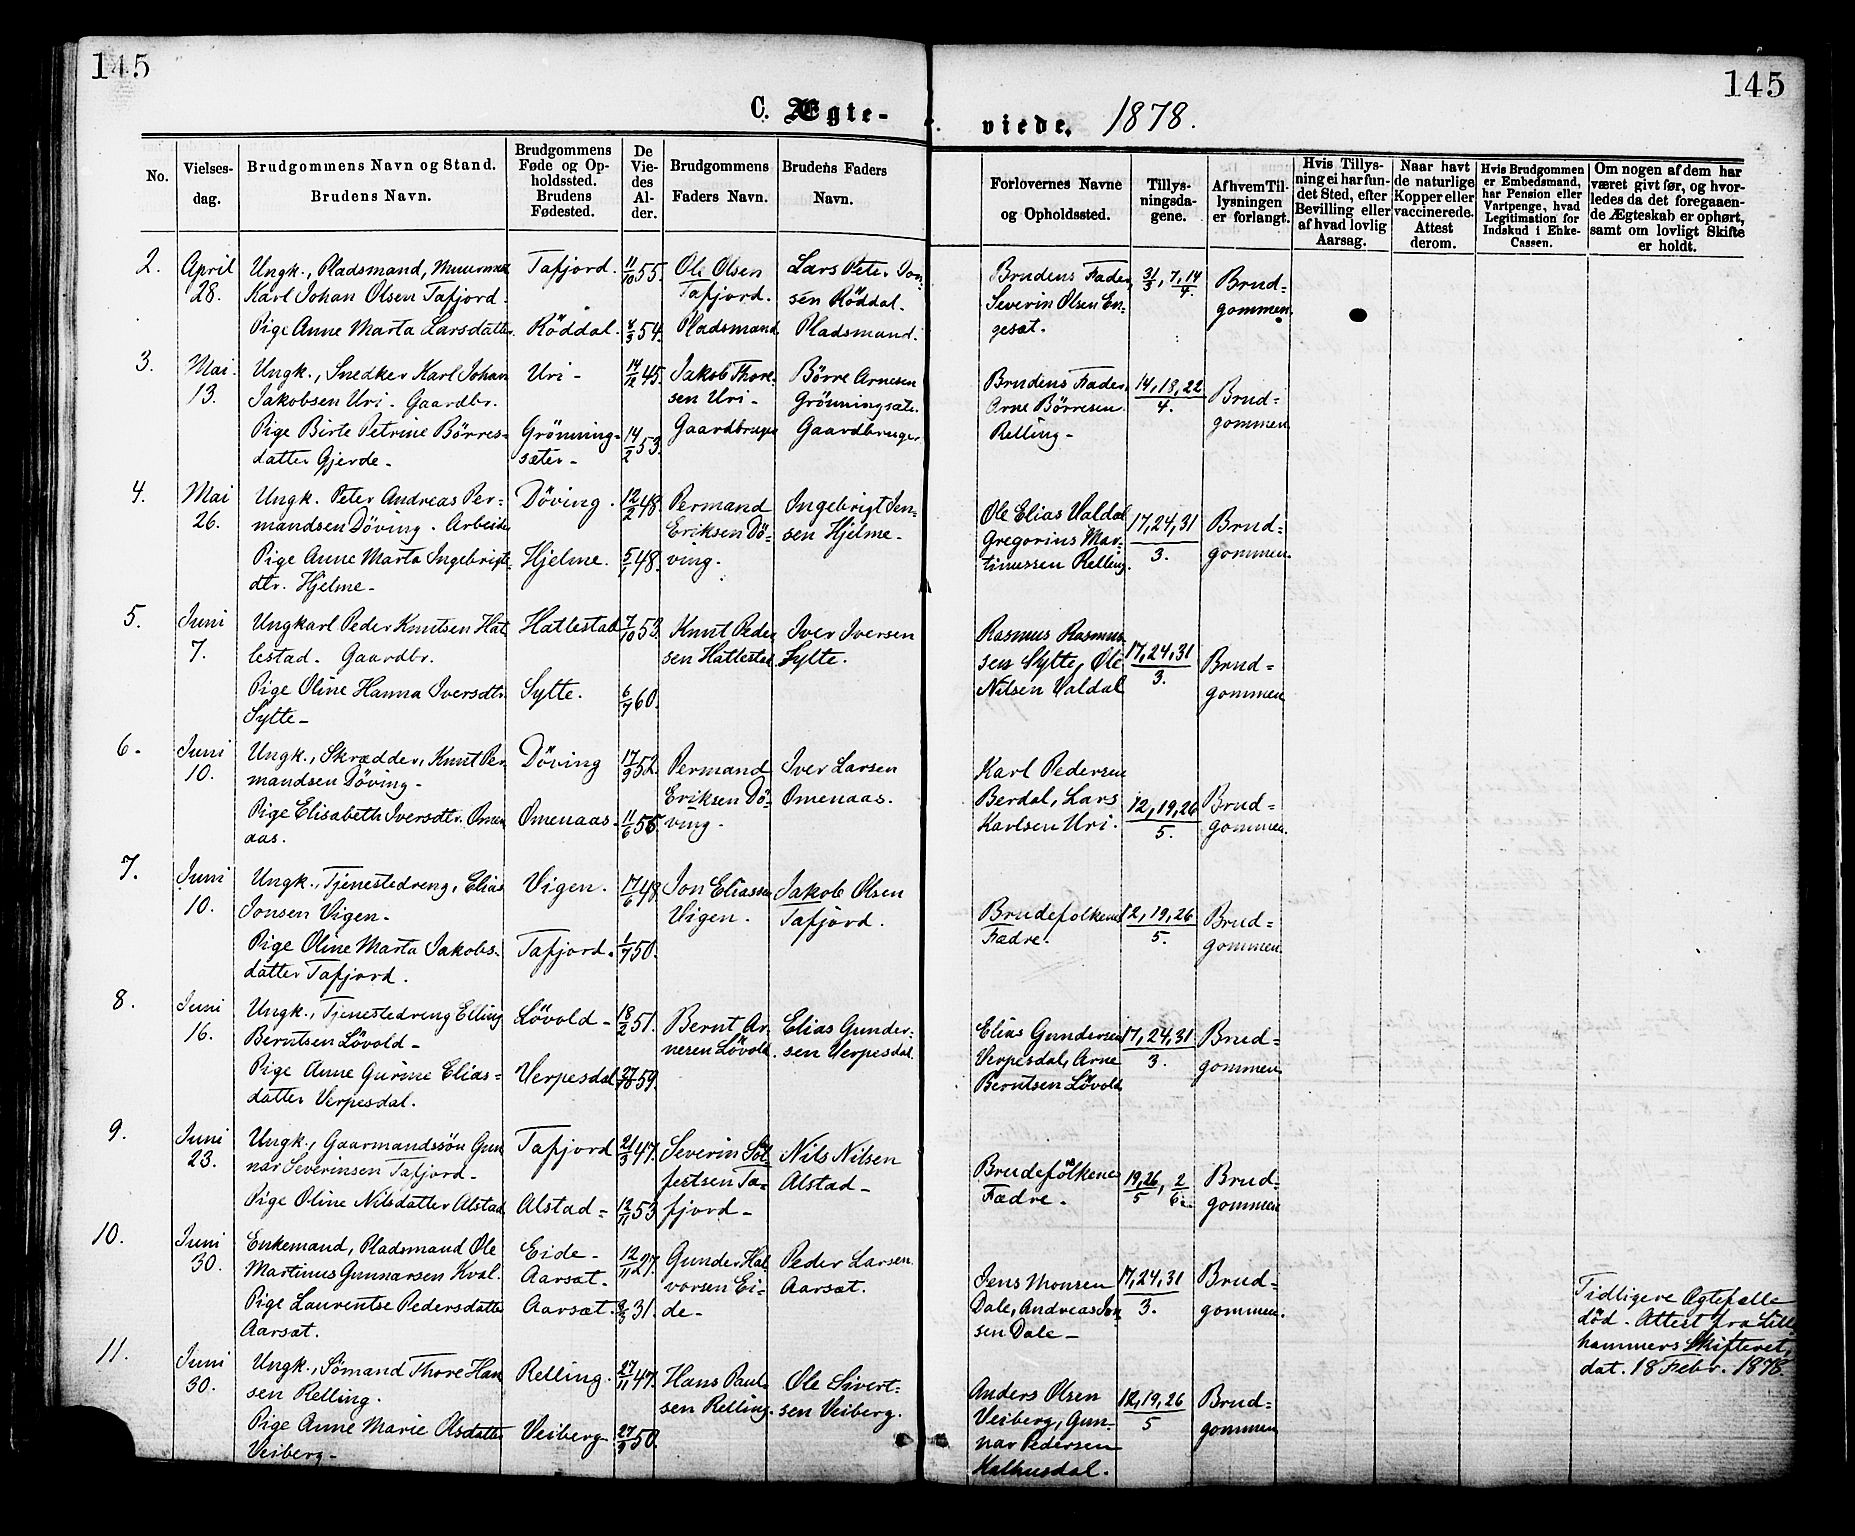 145
145
C. Ægte-
viede. 1878.
No.
Vielses-
dag.
Brudgommens Navn og Stand.
Brudens Navn.
Brudgommens
Føde og Op-
holdssted.
Brudens
Fødested.
De
Vie-
des
Al-
der.
Brudgommens
Faders Navn.
Brudens Faders
Navn.
Forlovernes Navne
og Opholdssted.
Tillys-
ningsda-
gene.
Af hvem Til-
lysningen
er forlangt.
Hvis Tillys-
ning ei har fun-
det Sted, efter
Bevilling eller
af hvad lovlig
Aarsag.
Naar havt
de naturlige
Kopper eller
vaccinerede.
Attest
derom.
Hvis Brudgommen
er Embedsmand,
har Pension eller
Vartpenge, hvad
Legitimation for
Indskud i Enke-
Cassen.
Om nogen af dem har
været givt før, og hvor-
ledes da det foregaaen-
de Ægteskab er ophørt,
samt om lovligt Skifte
er holdt.
2.
April
28.
Ungk., Pladsmand, Muurmed
Karl Johan Olsen Tafjord.
Pige Anne Marta Larsdatter
Tafjord.
Röddal.
11/10 55.
8/3 54.
Ole Olsen
Tafjord.
Pladsmand
Lars Peter Jon-
sen Röddal.
Pladsmand.
Brudens Fader
Severin Olsen En-
geset.
31/3, 7, 14/4.
Brud-
gommen.
3.
Mai
13.
Ungk., Snedker Karl Johan
Jakobsen Uri. Gaardbr.
Pige Birte Petrine Børres-
datter Gjerde-
Uri-
Grönning-
sæter-
14/12 45.
14/2 53.
Jakob Thore-
sen Uri-
Gaardbruger
Börre Arnesen
Grönningsæter.
Gaardbruger.
Brudens Fader
Arne Börresen
Relling-
14, 18, 22
4.
Brud-
gommen
4.
Mai
26.
Ungk. Peter Andreas Per-
mandsen Döving. Arbeider
Pige Anne Marta Ingebrigts-
dtr. Hjelme-
Döving.
Hjelme.
12/2 48.
5/1 48.
Permand
Eriksen Dö-
ving.
Ingebrigt Jen-
sen Hjelme-
Ole Elias Valdal
Gregorius Mar-
tinussen Relling.
17, 24, 31
3.
Brud-
gommen.
5.
Juni
7.
Ungkarl Peder Knutsen Hat-
lestad. Gaardbr.
Pige Oline Hanna Iversdtr.
Sylte-
Hatlestad
Sylte.
7/10 53.
6/7 60.
Knut Peder
sen Hatlestad
Iver Iversen
Sylte.
Rasmus Rasmus
sen Sylte, Ole
Nilsen Valdal
17, 24, 31
3.
Brud-
gommen
6.
Juni
10.
Ungk., Skrædder, Knut Per
mandsen Döving-
Pige Elisabeth Iversdtr. Omen
aas.
Döving
Omenaas.
17/9 52.
11/6 55
Permand
Eriksen Dö-
ving-
Iver Larsen
Omenaas.
Karl Pedersen
Berdal, Lars
Karlsen Uri.
12, 19, 26
5.
Brud-
gommen.
7.
Juni
10.
Ungk., Tjenestedreng, Elias
Jonsen Vigen-
Pige Oline Marta Jakobs-
datter Tafjord.
Vigen.
Tafjord.
17/6 48.
1/7 50.
Jon Eliassen
Vigen.
Jakob Olsen
Tafjord.
Brudefolkenes
Fædre.
12, 19, 26
5.
Brud-
gommen
8.
Juni
16.
Ungk., Tjenestedreng Elling
Berntsen Lövold-
Pige Anne Gurine Elias-
datter Verpesdal.
Lövold-
Verpesdal
18/2 51.
27/10 59.
Bernt Ar
nesen Lövold.
Elias Gunder-
sen Verpesdal
Elias Gundersen
Verpesdal, Arne
Berntsen Lövold
17, 24, 31.
3.
Brud-
gommen
9.
Juni
23.
Ungk., Gaarmandssön Gun
nar Severinsen Tafjord-
Pige Oline Nilsdatter Alstad
Tafjord
Alstad-
21/3 47.
12/11 53
Severin Söl-
festsen Ta-
fjord-
Nils Nilsen
Alstad-
Brudefolkenes
Fædre-
19, 26/5, 2/6.
Brud-
gommen
10.
Juni
30.
Enkemand, Pladsmand Ole
Martinus Gunnarsen Kval.
Pige Laurentse Pedersdatter
Aarsæt.
Eide-
Aarsæt.
Aarsæt.
12/11 27.
2/3 31.
Gunder Hal
vorsen Ei-
de-
Peder Larsen
Aarsæt.
Jens Monsen
Dale, Andreas Jon-
sen Dale-
17, 24, 31
3.
Brud-
gommen.
Tidligere Ægtefælle
död. Attest fra Lille
hammers Skifteret,
dat. 18 Febr. 1878.
11.
Juni
30.
Ungk., Sömand Thore Han
sen Relling.
Pige Anne Marie Olsdatter
Veiberg-
Relling.
Veiberg
27/11 47.
27/9 50.
Hans Paul-
sen Relling.
Ole Sivert-
sen Veiberg.
Anders Olsen
Veiberg, Gun-
nar Pedersen
Kalhusdal.
12, 19, 26
5
Brud-
gommen